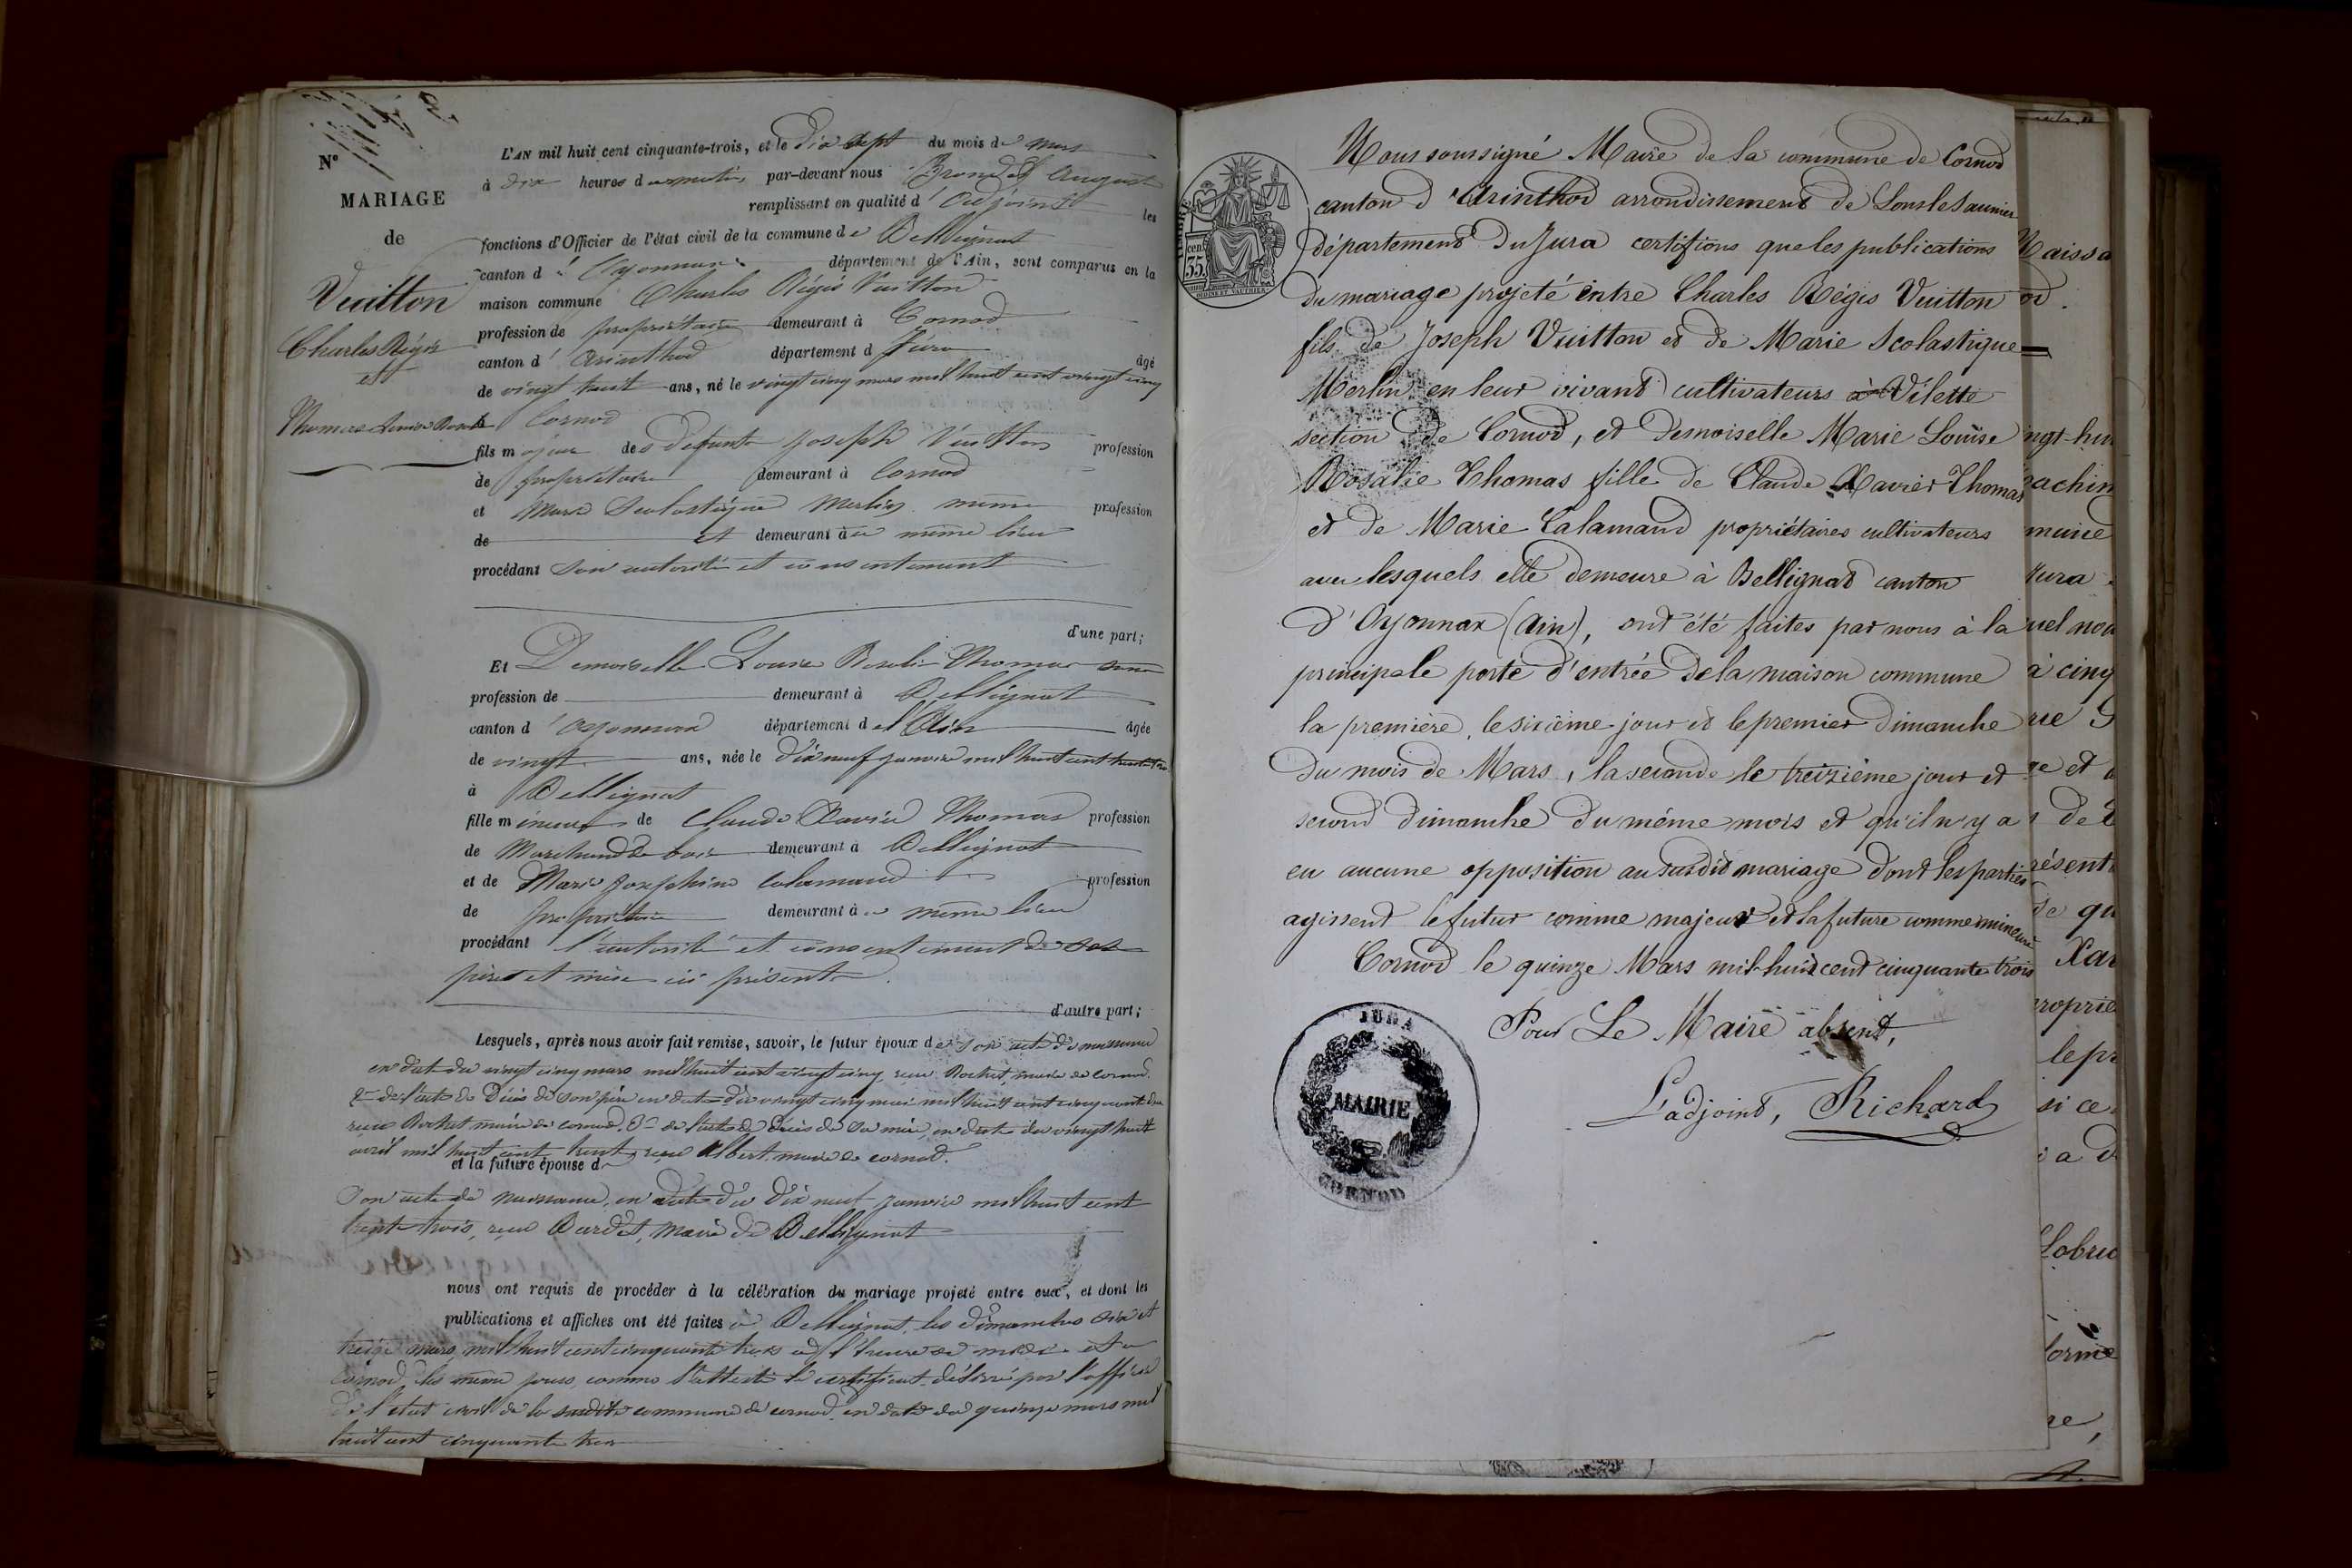 N°
MARIAGE
de
Vuitton
Charles Régis
et
Thomas Louise Rosalie
L'AN mil huit cent cinquante-trois, et le dix sept du mois de mars
à dix heures du matin par-devant nous Auguste
remplissant en qualité d'adjoint les
fonctions d'Officier de l'état civil de la commune de Bellignat
canton d'Oyonnax département de l'Ain, sont comparus en la
maison commune Charles Régis Vuitton
profession de propriétaire demeurant à Cornod
canton d'Arinthod département d Jura âgé
de vingt huit ans, né le vingt cinq mars mil huit cent vingt cinq
à Cornod
fils majeur des défunts Joseph Vuitton profession
de propriétaire demeurant à Cornod
et Marie Scolastique Merlin profession
de et demeurant au même lieu
procédant son autorité et consentement
d'une part;
Et Demoiselle Louise Rosalie Thomas sans
profession de demeurant à Bellignat
canton d'Oyonnax département de l'Ain âgée
de vingt ans, née le dix neuf janvier mil huit cent trente trois
à Bellignat
fille mineure de Claude Xavier Thomas profession
de Marchand de bois demeurant à Bellignat
et de Marie Joséphine Calamand profession
de propriétaire demeurant au même lieu
procédant l'autorité et consentement de ses
père et mère ici présents.
d'autre part;
Lesquels, après nous avoir fait remise, savoir, le futur époux de son acte de naissance
en date du vingt cinq mars mil huit cent vingt cinq, reçu Rochet, maire de cornod.
2° de l'acte de décès de son père en date du vingt cinq mai mil huit cent cinquante
reçu Rochet maire de cornod, 3° de l'acte de décès de sa mère, en date du vingt huit
avril mil huit cent trente, reçu Albert maire de cornod.
et la future épouse d
son acte de naissance, en date du dix neuf janvier mil huit cent
trente trois, reçu maire de Bellignat
nous ont requis de procéder à la célébration du mariage projeté entre eux, et dont les
publications et affiches ont été faites à Bellignat, les dimanches six et
treize mars mil huit cent cinquante trois à l'heure de midi et à
Cornod, les même jours, comme l'atteste le certificat délivré par l'officier
de l'état civil de la susdite commune de cornod, en date du quinze mars mil
huit cent cinquante trois
TIMBRE
cen
35
Nous soussigné Maire de la commune de Cornod
canton d'Arinthod arrondissement de Lons le Saunier
département du Jura certifions que les publications
du mariage projeté entre Charles Régis Vuitton
fils de Joseph Vuitton et de Marie Scolastique
Merlin en leur vivant cultivateurs à Vilette
section de Cornod, et Demoiselle Marie Louise
Rosalie Thomas fille de Claude Xavier Thomas
et de Marie Calamand propriétaires cultivateurs
avec lesquels elle demeure à Bellignat canton
d'Oyonnax (Ain), ont été faites par nous à la
principale porte d'entrée de la maison commune
la première, le sixième jour et le premier dimanche
du mois de Mars, la seconde le treizième jour et
second dimanche du même mois et qu'il n'y a
eu aucune opposition au susdit mariage dont les parties
agissent le futur comme majeur et la future comme mineure
Cornod le quinze Mars mil huit cent cinquante trois
Pour Le Maire absent,
L'adjoint, Richard
JURA
MAIRIE
CORNOD
Naissa
od.
ngt-hui
achin
mune
Jura
uel nou
à cinq
re et
résent
de qu
Xav
roprié
le pr
si ce